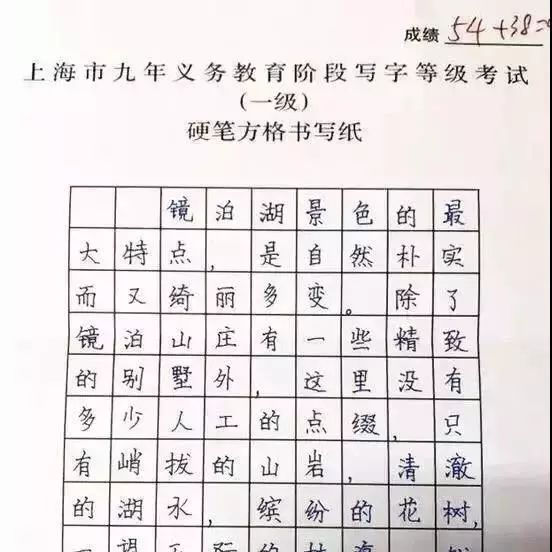 成绩 54+38=
上海市九年义务教育阶段写字等级考试
(一级)
硬笔方格书写纸
镜泊湖景色的最
大特点，是自然朴实
而又绮丽多变。除了
镜泊山庄有一些精致
的别墅外，这里没有
多少人工的点缀，只
有峭拔的山岩，清澈
的湖水，缤纷的花树，
一望